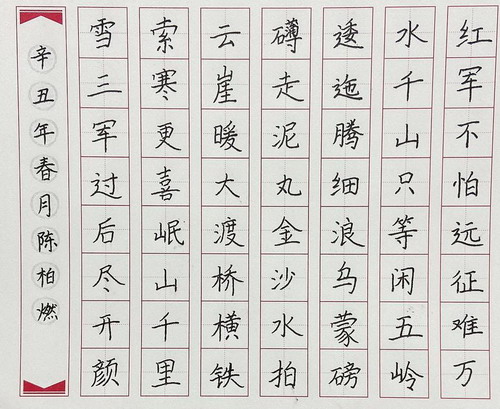 红军不怕远征难万
水千山只等闲五岭
逶迤腾细浪乌蒙磅
礴走泥丸金沙水拍
云崖暖大渡桥横铁
索寒更喜岷山千里
雪三军过后尽开颜
辛丑年春月陈柏燃